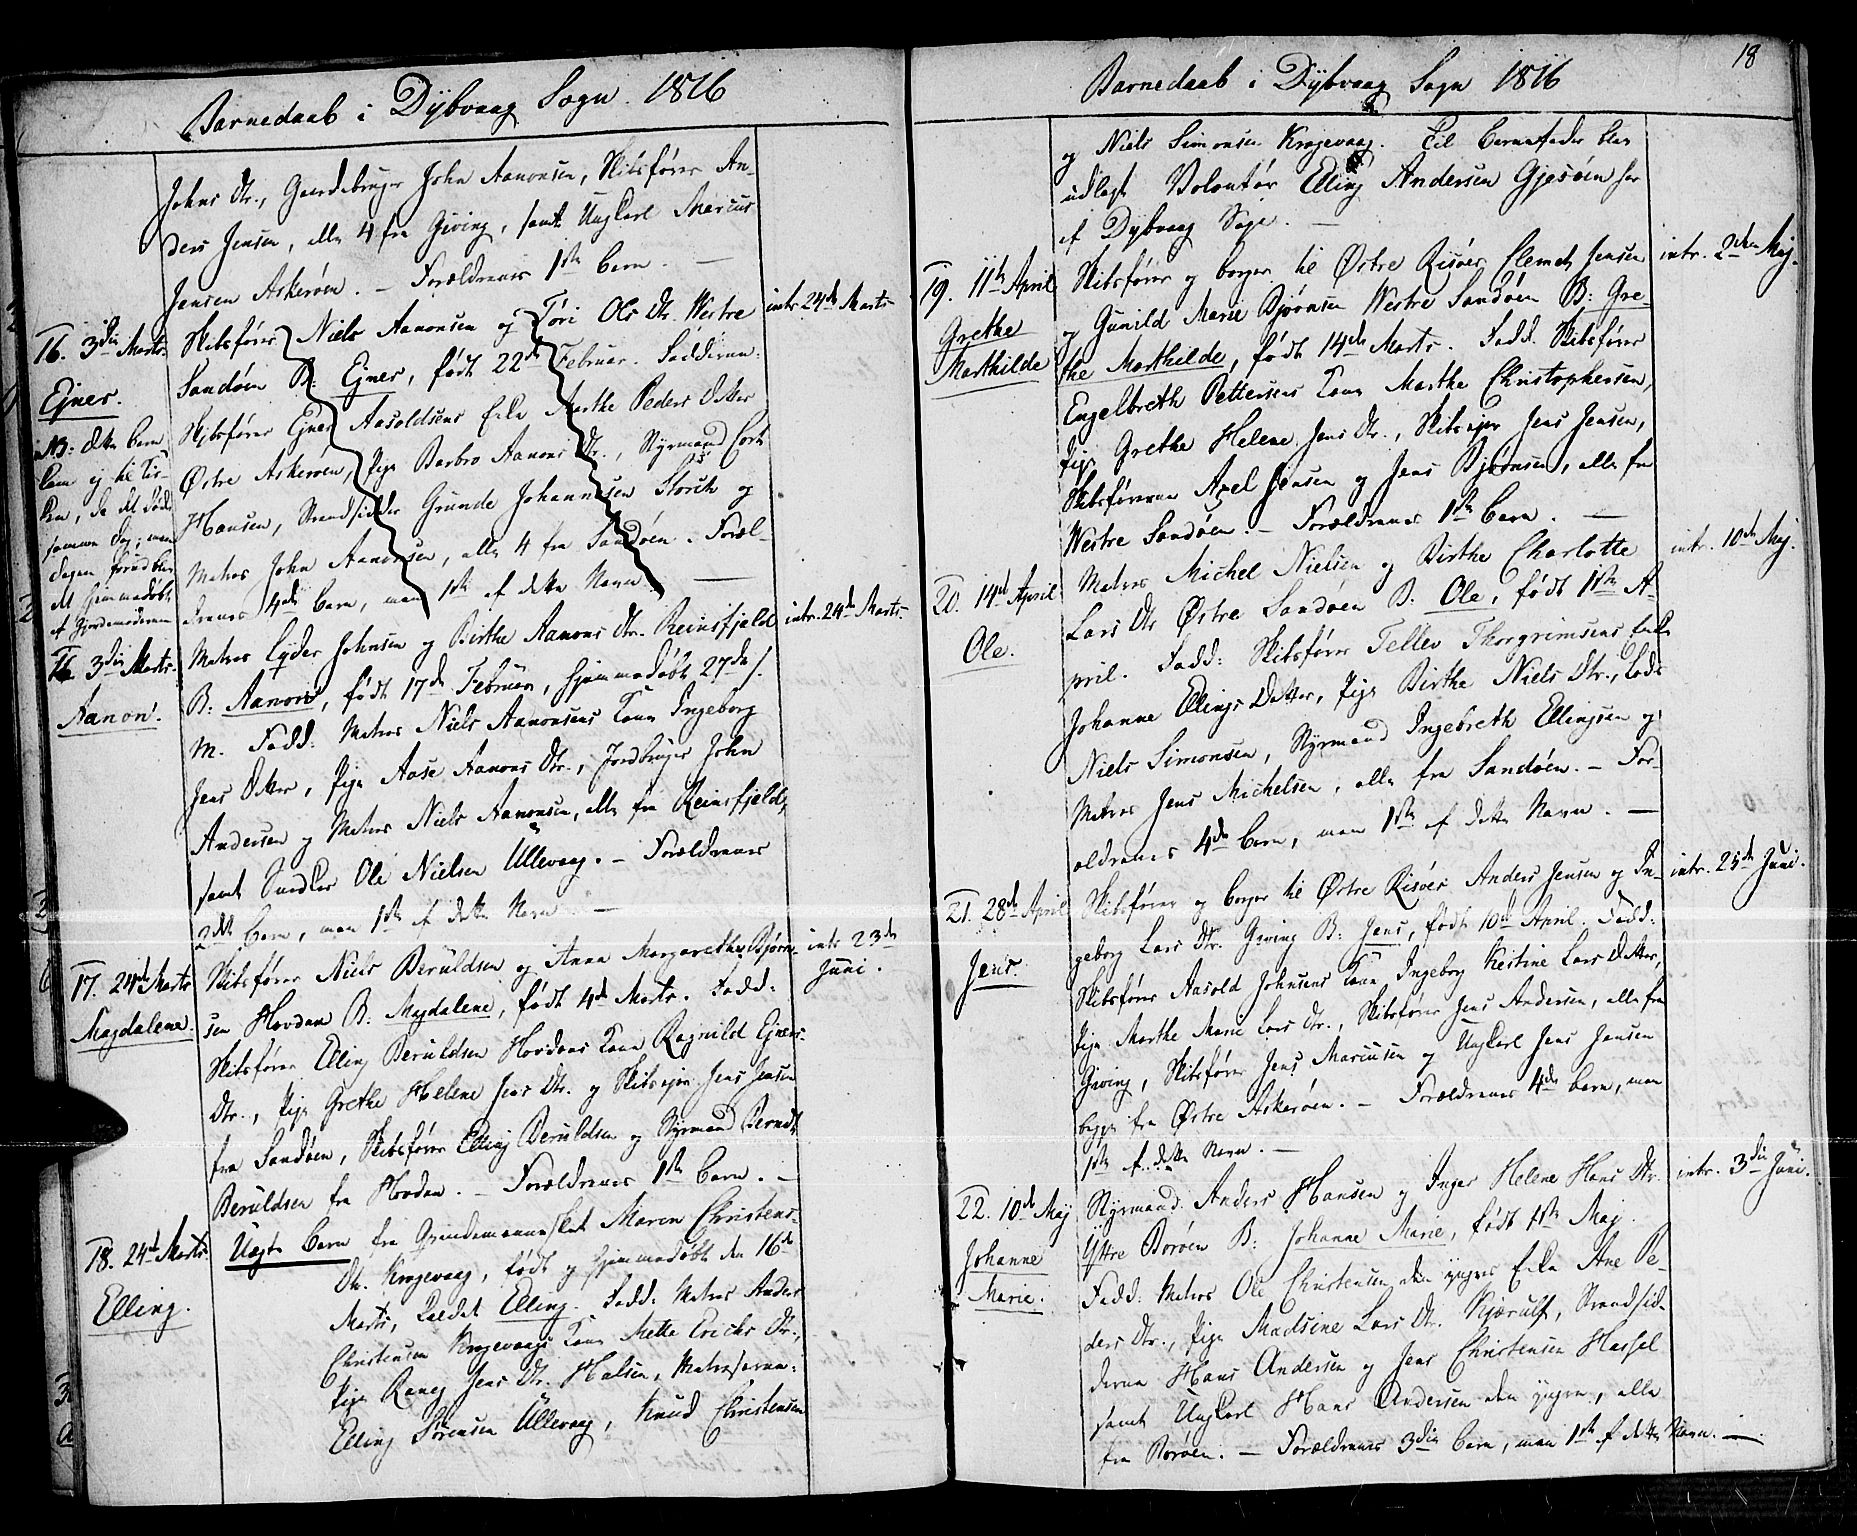 Barnedaab i Dybvaag Sogn. 1816
Johns Dtr., Gaardebruger John Aanonsen, Skibsfører An-
ders Jensen, alle 4 fra Giving, samt Ungkarl Marcus
Jensen Askerøen. – Forældrenes 1ste Barn. –
16. 3die Marts.
Ejner.
NB: dette Barn
kom ej til Kir-
ken, da det døde
samme Dag; men
Dagen forud blev
det hjemmedøbt
af Gjordemoderen
Skibsfører Niels Aanonsen og Tøri Ols Dtr. Westre
Sandøen B: Ejner, født 22de Februar. Fadderne:
Skibsfører Ejner Aasoldsens Enke Marthe Peders Datter
Østre Askerøen, Pige Barbro Aanons Dtr., Styrmand Cort
Hansen, Strandsidder Grunde Johannesen Storch og
Matros John Aanonsen, alle 4 fra Sandøen. Foræl-
drenes 4de Barn, men 1ste af dette Navn. –
intr. 24de Marts
16. 3die Marts.
Aanon.
Matros Lyder Johnsen og Birthe Aanons Dtr. Reinsfjeld
B: Aanon, født 17de Februar, hjemmedøbt 27de s.
m. Fadd: Matros Niels Aanonsens Kone Ingeborg
Jens Datter, Pige Aase Aanons Dtr., Jordbruger John
Andersen og Matros Niels Aanonsen, alle fra Reinsfjeld,
samt Ole Nielsen Üllevaag. – Forældrenes
2det Barn, men 1ste af dette Navn –
intr. 24de Marts.
17. 24de Marts
Magdalene.
Skibsfører Niels Berüldsen og Anna Margarethe Bjørn-
sen Hovdan B: Magdalene, født 4de Marts. Fadd:
Skibsfører Elling Berüldsen Hovdans Kone Ragnild Ejners
Dtr., Pige Grethe Helene Jens Dtr. og Skibsejer Jens Jensen
fra Sandøen, Skibsfører Elling Berüldsen og Styrmand Berndt
Berüldsen fra Hovdan. – Forældrenes 1ste Barn. –
intr 23de
Juni.
18. 24de Marts
Elling.
Uægte Barn fra Qvindemennesket Maren Christens-
Dtr. Krogevaag, født og hjemmedøbt den 16de
Marts, kaldet Elling. Fadd: Matros Anders
Christensen Krogevaags Kone Mette Erichs Dtr.,
Pige Raneg Jens Dtr. Halsen, Matroserne:
Elling Sørensen Üllevaag, Knud Christensen
Barnedaab i Dybvaag Sogn 1816
18
og Niels Simonsen Krogevaag. Til Barnefader blev
udlagt Volontør Elling Andersen Gjesøen her
af Dybvaag Sogn. –
19. 11te April
Grethe
Marthilde
Skibsfører og borger til Østre Risøer Clemet Jensen
og Gunild Marie Bjørnsen Westre Sandøen B: Gre-
the Marthilde, født 14de Marts. Fadd. Skibsfører
Engelbreth Pettersens Kone Marthe Christophersen,
Pige Grethe Helene Jens Dtr., Skibsejer Jens Jensen,
Skibsførerne Axel Jensen og Jens Bjørnsen, alle fra
Westre Sandøen. – Forældrenes 1ste Barn. –
intr. 2den Maj.
20. 14de April
Ole.
Matros Michel Nielsen og Birthe Charlotte
Lars Dtr Østre Sandøen B: Ole, født 1ste A-
pril. Fadd: Skibsfører Tellev Thorgrimsens Enke
Johanne Ellings Datter, Pige Birthe Niels Dtr., Lods
Niels Simonsen, Styrmand Ingebreth Ellingsen og
Matros Jens Michelsen, alle fra Sandøen. – For-
ældrenes 4de Barn, men 1ste af dette Navn. –
intr. 10de Maj.
21. 28de April
Jens.
Skibsfører og borger til Østre Risøer Anders Jensen og In-
geborg Lars Dtr. Giving B: Jens, født 10de April. Fadd:
Skibsfører Aasold Johnsens Kone Ingeborg Kestine Lars Datter,
Pige Marthe Marie Lars Dtr., Skibsfører Jens Andersen, alle fra
Giving, Skibsfører Jens Marcussen og Ungkarl Jens Jensen
begge fra Østre Askerøen. – Forældrenes 4de Barn, men
1ste af dette Navn. –
intr. 25de Juni.
22. 10de Maj
Johanne
Marie.
Styrmand Anders Hansen og Inger Helene Hans Dtr.
Yttre Borøen B: Johanne Marie, født 1ste Maj.
Fadd: Matros Ole Christensen den yngres Enke Ane Pe-
ders Dtr., Pige Madsine Lars Dtr. Kjærulf, Strandsid-
derne Hans Andersen og Jens Christensen Hassel
samt Ungkarl Hans Andersen den yngre, alle
fra Borøen. – Forældrenes 3die Barn, men 1ste af dette Navn. –
intr. 3die Juni.